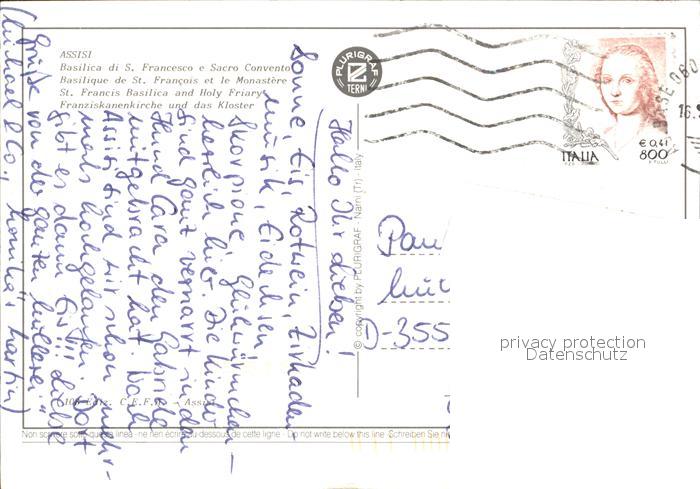 ASSISI
Basilica di S. Francesco e Sacro Convento
Basilique de St. François et le Monastère
St. Francis Basilica and Holy Friary
Franziskanenkirche und das Kloster
PLURIGRAF
TERNI
ITALIA
€ 0,41
800
16.
Hallo Ihr Lieben!
Sonne, Eis, Rotwein, Zikaden-
musik, Eidechsen,
Skorpione, Glühwürmchen –
herrlich hier. Die Kinder
sind ganz vernarrt in den
Hund Cara, den Gabriele
mitgebracht hat. Nach
Assisi sind wir schon mehr-
mals hochgelaufen. Dort
gibt es dann Eis!!! Liebe
Grüße von der ganzen Müllerei"
(Michael & Co.,
© copyright by PLURIGRAF - Narni (Tr) - Italy
Pau
D-355
privacy protection
Datenschutz
Assisi
Non scrivere sotto questa linea - ne rien écrire au-dessous de cette ligne - Do not write below this line. Schreiben Sie